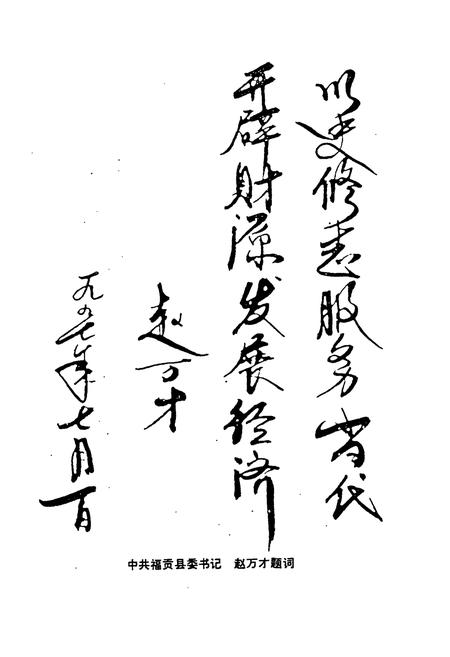 以史修志服务当代
开辟财源发展经济
赵万才
一九九七年七月一日
中共福贡县委书记 赵万才题词